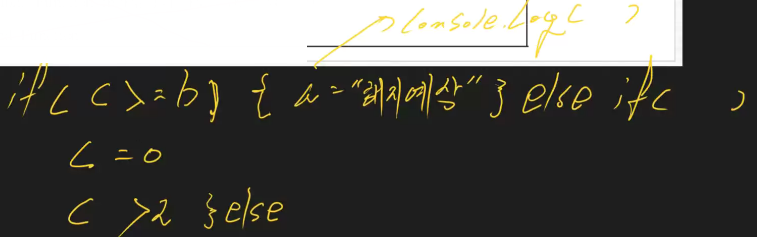 Console.Log( )
if( C >= b) { a = "해지예상" } else if( )
C = 0
C > 2 } else